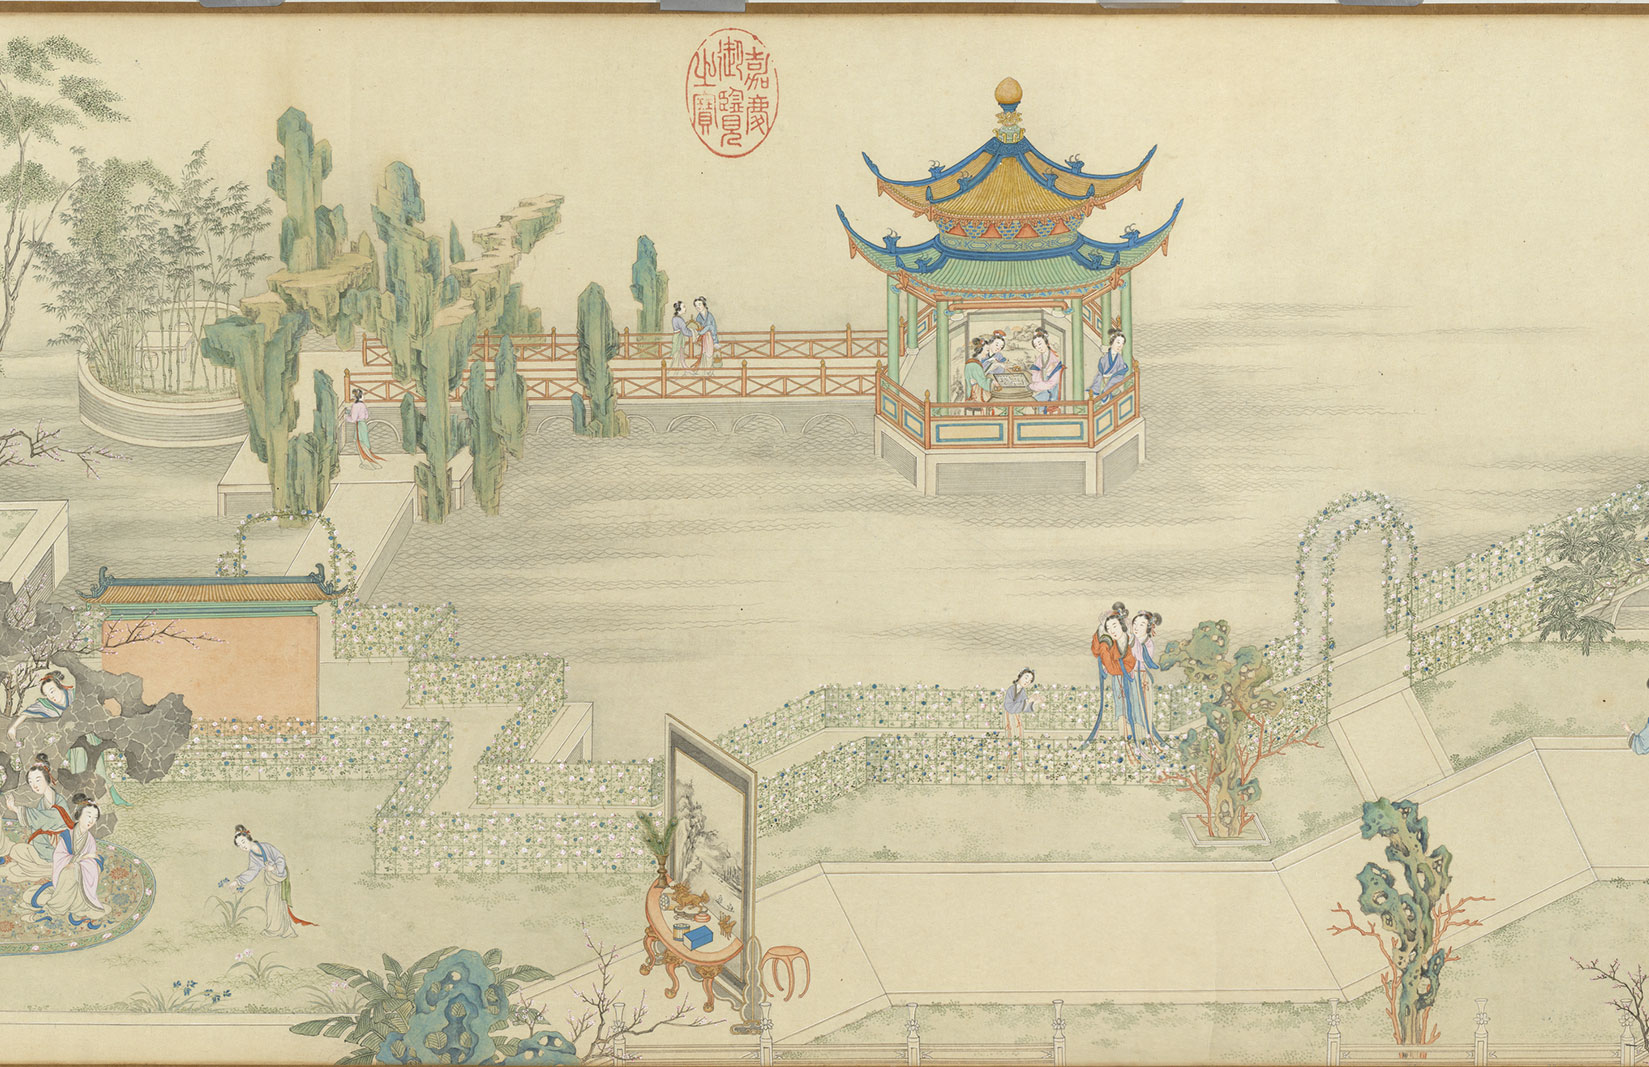 嘉慶
御覽
之寶